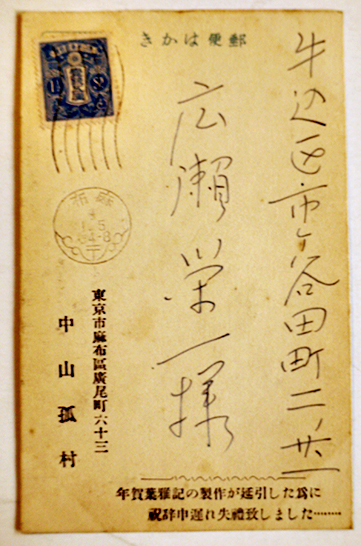 郵便はかき
牛込区市ヶ谷田町二ノ廿一
広瀬栄一様
東京市麻布區廣尾町六十三
中山孤村
年賀葉雅記の製作が延引した爲に
祝辞申遅れ失禮致しました………
麻布